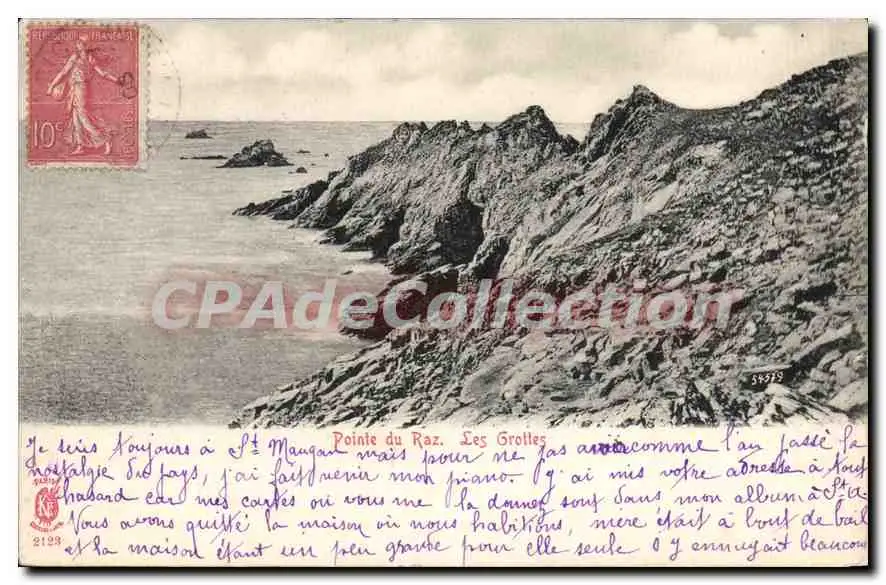 REPUBLIQUE FRANÇAISE
10c POSTES
CPADeCollection.com
54579
Pointe du Raz. Les Grottes
Je suis toujours à St Maugan mais pour ne pas avoir comme l'an passé la
nostalgie du pays, j'ai fait venir mon piano. J'ai mis votre adresse à tout
hasard car mes cartes où vous me la donnez sont dans mon album à St
Vous avons quitté la maison où nous habitions, mère était à bout de bail
et la maison étant un peu grande pour elle seule s'y ennuyait beaucoup
PARIS
2123